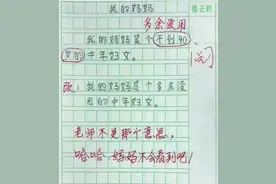 我的妈妈
多余没用
我的妈妈是个不到40
岁的中年妇女。
改：我的妈妈是个多余没
用的中年妇女。
老师不是那个意思，
哈哈，妈妈不会看到吧！